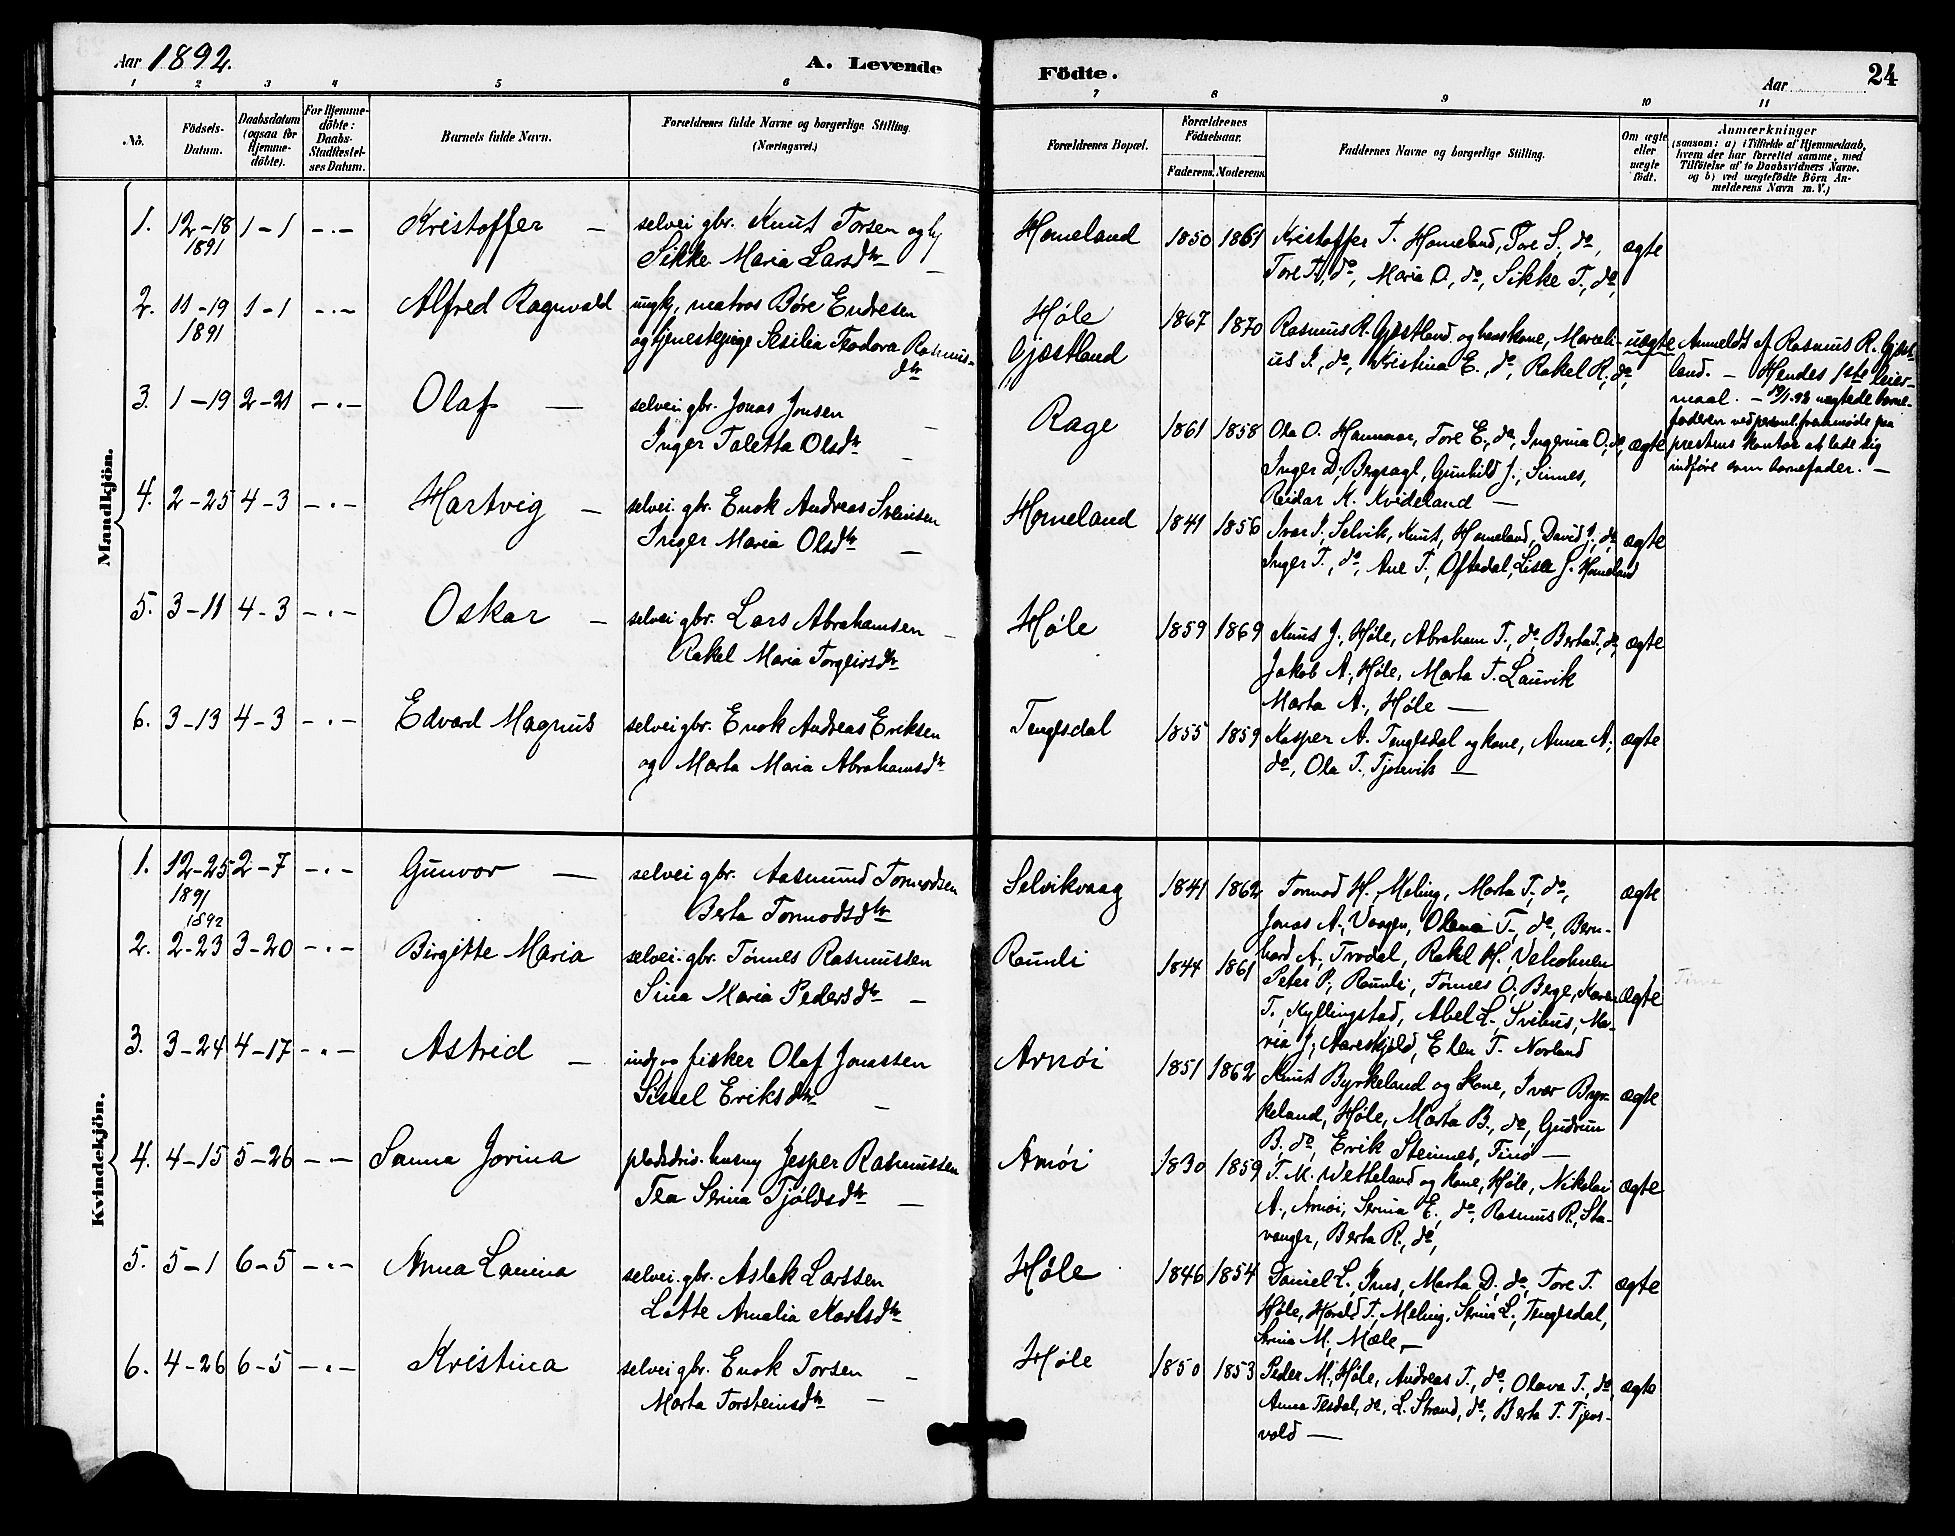 Aar 1892.
A. Levende
Födte.
Aar
24
1 2 3 4 5 6 7 8 9 10 11
No.
Födsels-
Datum.
Daabsdatum
(ogsaa for
Hjemme-
döbte).
For Hjemme-
döbte:
Daabs-
Stadfæstel-
ses Datum.
Barnets fulde Navn.
Forældrenes fulde Navne og borgerlige Stilling.
(Næringsvei.)
Forældrenes Bopæl.
Forældrenes
Födselsaar.
Faderens. Moderens.
Faddernes Navne og borgerlige Stilling.
Om ægte
eller
uægte
födt.
Anmærkninger
(saasom: a) i Tilfælde af Hjemmedaab,
hvem der har forrettet samme, med
Tilföielse af to Daabsvidners Navne,
og b) ved uægtefödte Börn An-
melderens Navn m. V.)
Mandkjön.
1. 12-18 1891 1-1 -.- Kristoffer - selvei gbr. Knut Torsen og h.
Sikke Maria Larsdtr -
Homeland 1850 1861 Kristoffer T. Homeland, Tore S., do, ægte
Tore T., do, Maria O., do, Sikke T., do,
2. 11-19 1891 1-1 -.- Alfred Ragnvald ungk, matros Børe Endresen
og tjenestepige Sesilia Teodora Rasmus-
dtr
Høle
Gjæstland
1867 1870 Rasmus R. Gjæstland og hans kone, Marseli- uægte
us I., do, Kristina E., do, Rakel R., do,
Anmeldt af Rasmus R. Gjæst-
land. - Hendes 1ste leier-
maal. - 19/1.93 nægtede barne-
faderen ved personl. fremmøde paa
prestens kontor at lade sig
indføre som barnefader. -
3. 1-19 2-21 -.- Olaf - selvei gbr. Jonas Jonsen
Inger Taletta Olsdtr -
Rage 1861 1858 Ola O. Hammar, Tore E., do, Ingerina O., do, ægte
Inger D., Bergsagl, Gunhild J., Sinnes,
Reidar K. Kvideland -
4. 2-25 4-3 -.- Hartvig - selvei gbr. Enok Andreas Sveinsen
Inger Maria Olsdtr -
Homeland 1841 1856 Ivar I., Selvik, Knut, Homeland, David J., do, ægte
Inger T., do, Ane T., Oftedal, Lise J. Homeland
5. 3-11 4-3 -.- Oskar - selvei gbr. Lars Abrahamsen -
Rakel Maria Torgeirsdtr
Høle 1859 1869 Knut J., Høle, Abraham T., do, Berta T., do, ægte
Jakob A., Høle, Marta T. Lauvik
Marta A., Høle -
6. 3-13 4-3 -.- Edvard Magnus selvei gbr. Enok Andreas Eriksen
og Marta Maria Abrahamsdtr
Tenglsdal 1855 1859 Kasper A. Tenglsdal og kone, Anna A., ægte
do, Ola T., Tjøsevik -
Kvindekjön.
1. 12-25 1891 2-7 -.- Gunvor - selvei gbr. Aasmund Tormodsen
Berta Tormodsdtr
Selvikvaag 1841 1862 Tormod H., Meling, Marta T., do, ægte
Jonas A., Vaagen, Olena T., do, Bern-
hard A., Trodal, Rakel H., Veholmen
2. 1892 2-23 3-20 -.- Birgitte Maria selvei gbr. Tønnes Rasmussen
Sina Maria Pedersdtr -
Raunli 1844 1861 Peter P., Raunli, Tønnes O., Berge, Karen ægte
T., Kyllingstad, Abel L., Svihus, Ma-
ria J., Aareskjold, Elen T. Norland
3. 3-24 4-17 -.- Astrid - indg. fisker Olaf Jonassen
Sissel Eriksdtr -
Arnøi 1851 1862 Knut Byrkeland og kone, Ivar Byr- ægte
keland, Høle, Marta B., do, Gudrun
B., do, Erik Steinnes, Tino -
4. 4-15 5-26 -.- Sanna Jorina pladsdrv. husm. Jesper Rasmussen
Tea Serina Tjøldsdtr -
Arnøi 1830 1859 T. M. Wetteland og kone, Høle, Nikolai ægte
A., Arnøi, Serina E., do, Rasmus R., Sta-
vanger, Berta R., do,
5. 5-1 6-5 -.- Anna Lanina selvei gbr. Aslak Larssen
Lotte Amalia Karlsdtr
Høle 1846 1854 Daniel L., Ims, Marta D., do, Tore T. ægte
Høle, Harald T., Meling, Serina L., Tenglsdal,
Serina M., Mæle, -
6. 4-26 6-5 -.- Kristina selvei gbr. Enok Torsen -
Marta Torsteinsdtr -
Høle 1850 1853 Peder M., Høle, Andreas T., do, Olava T., do, ægte
Anna Tlsdal, do, L. Strand, do, Berta T. Tjens-
vold -